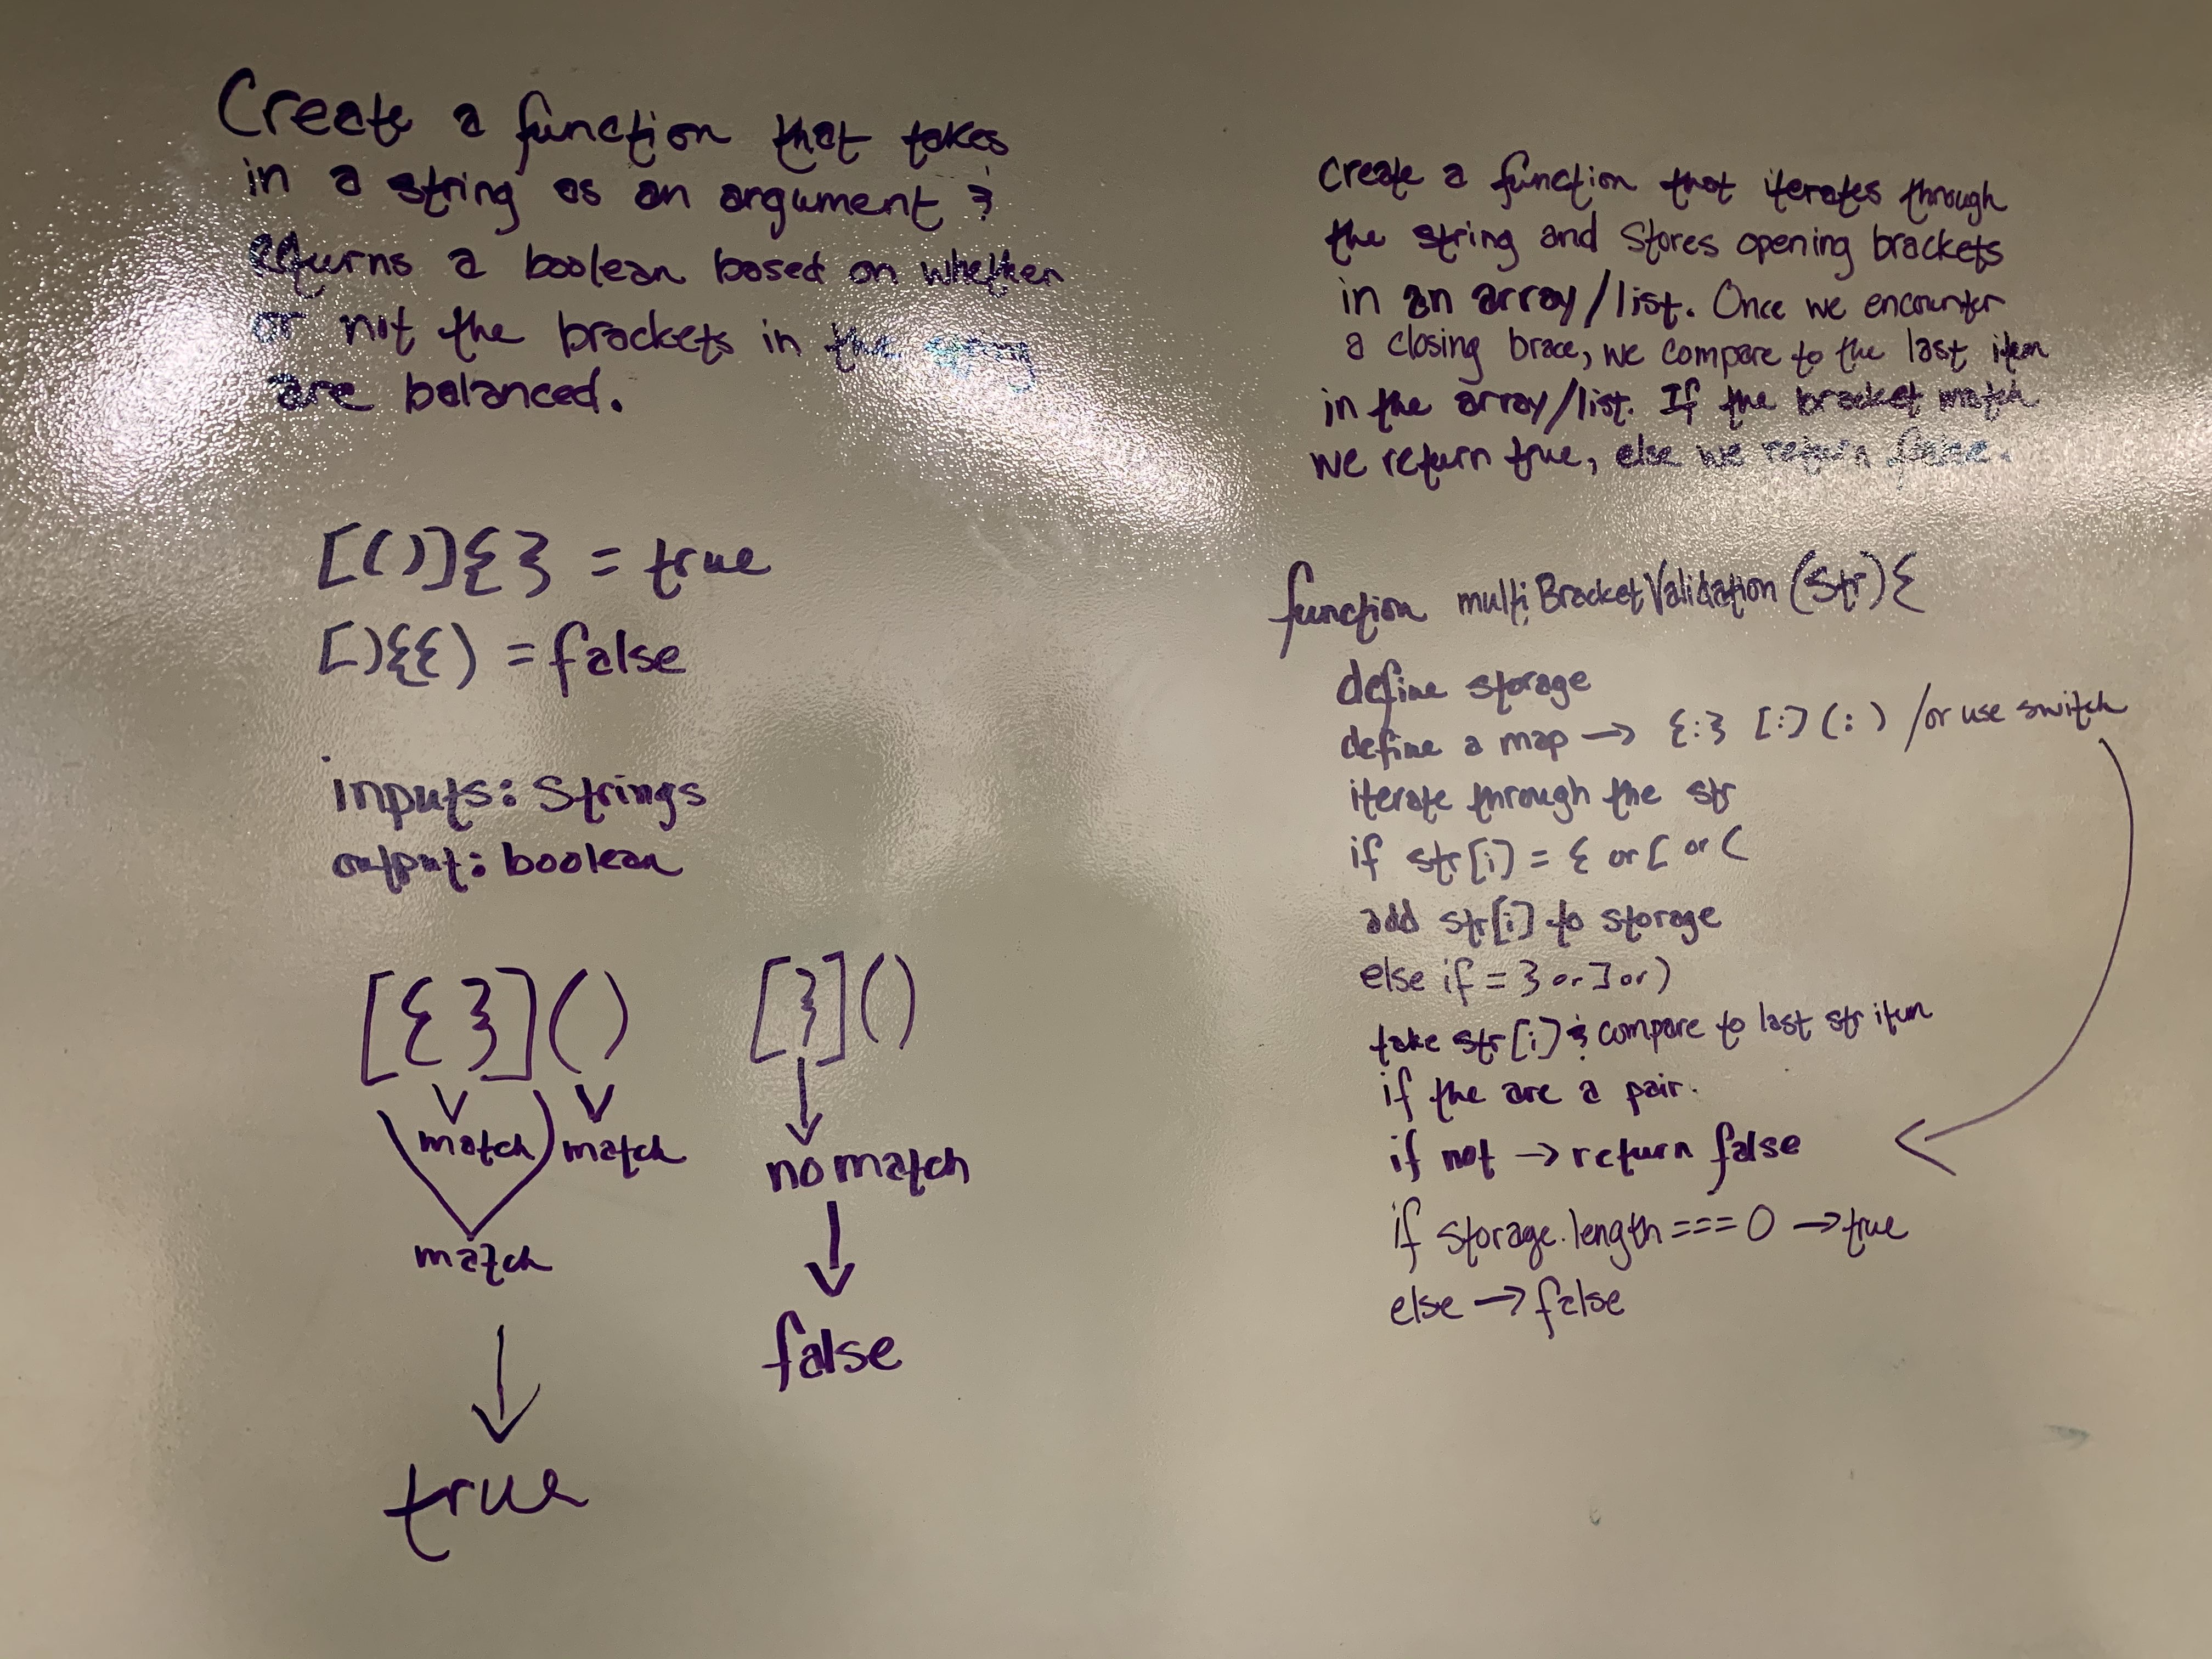 Create a function that takes
in a string as an argument &
returns a boolean based on whether
or not the brackets in the string
are balanced.
[()]{} = true
[){{) = false
inputs: Strings
output: boolean
[{}]() [}]()
match match
no match
match
false
true
Create a function that iterates through
the string and stores opening brackets
in an array/list. Once we encounter
a closing brace, we compare to the last item
in the array/list. If the bracket match
we return true, else we return false.
function multiBracketValidation (str){
define storage
define a map → {:} [:] (:) /or use switch
iterate through the str
if str[i] = { or [ or (
add str[i] to storage
else if = } or ] or )
take str[i] & compare to last str item
if the are a pair.
if not → return false
if storage.length === 0 → true
else → false